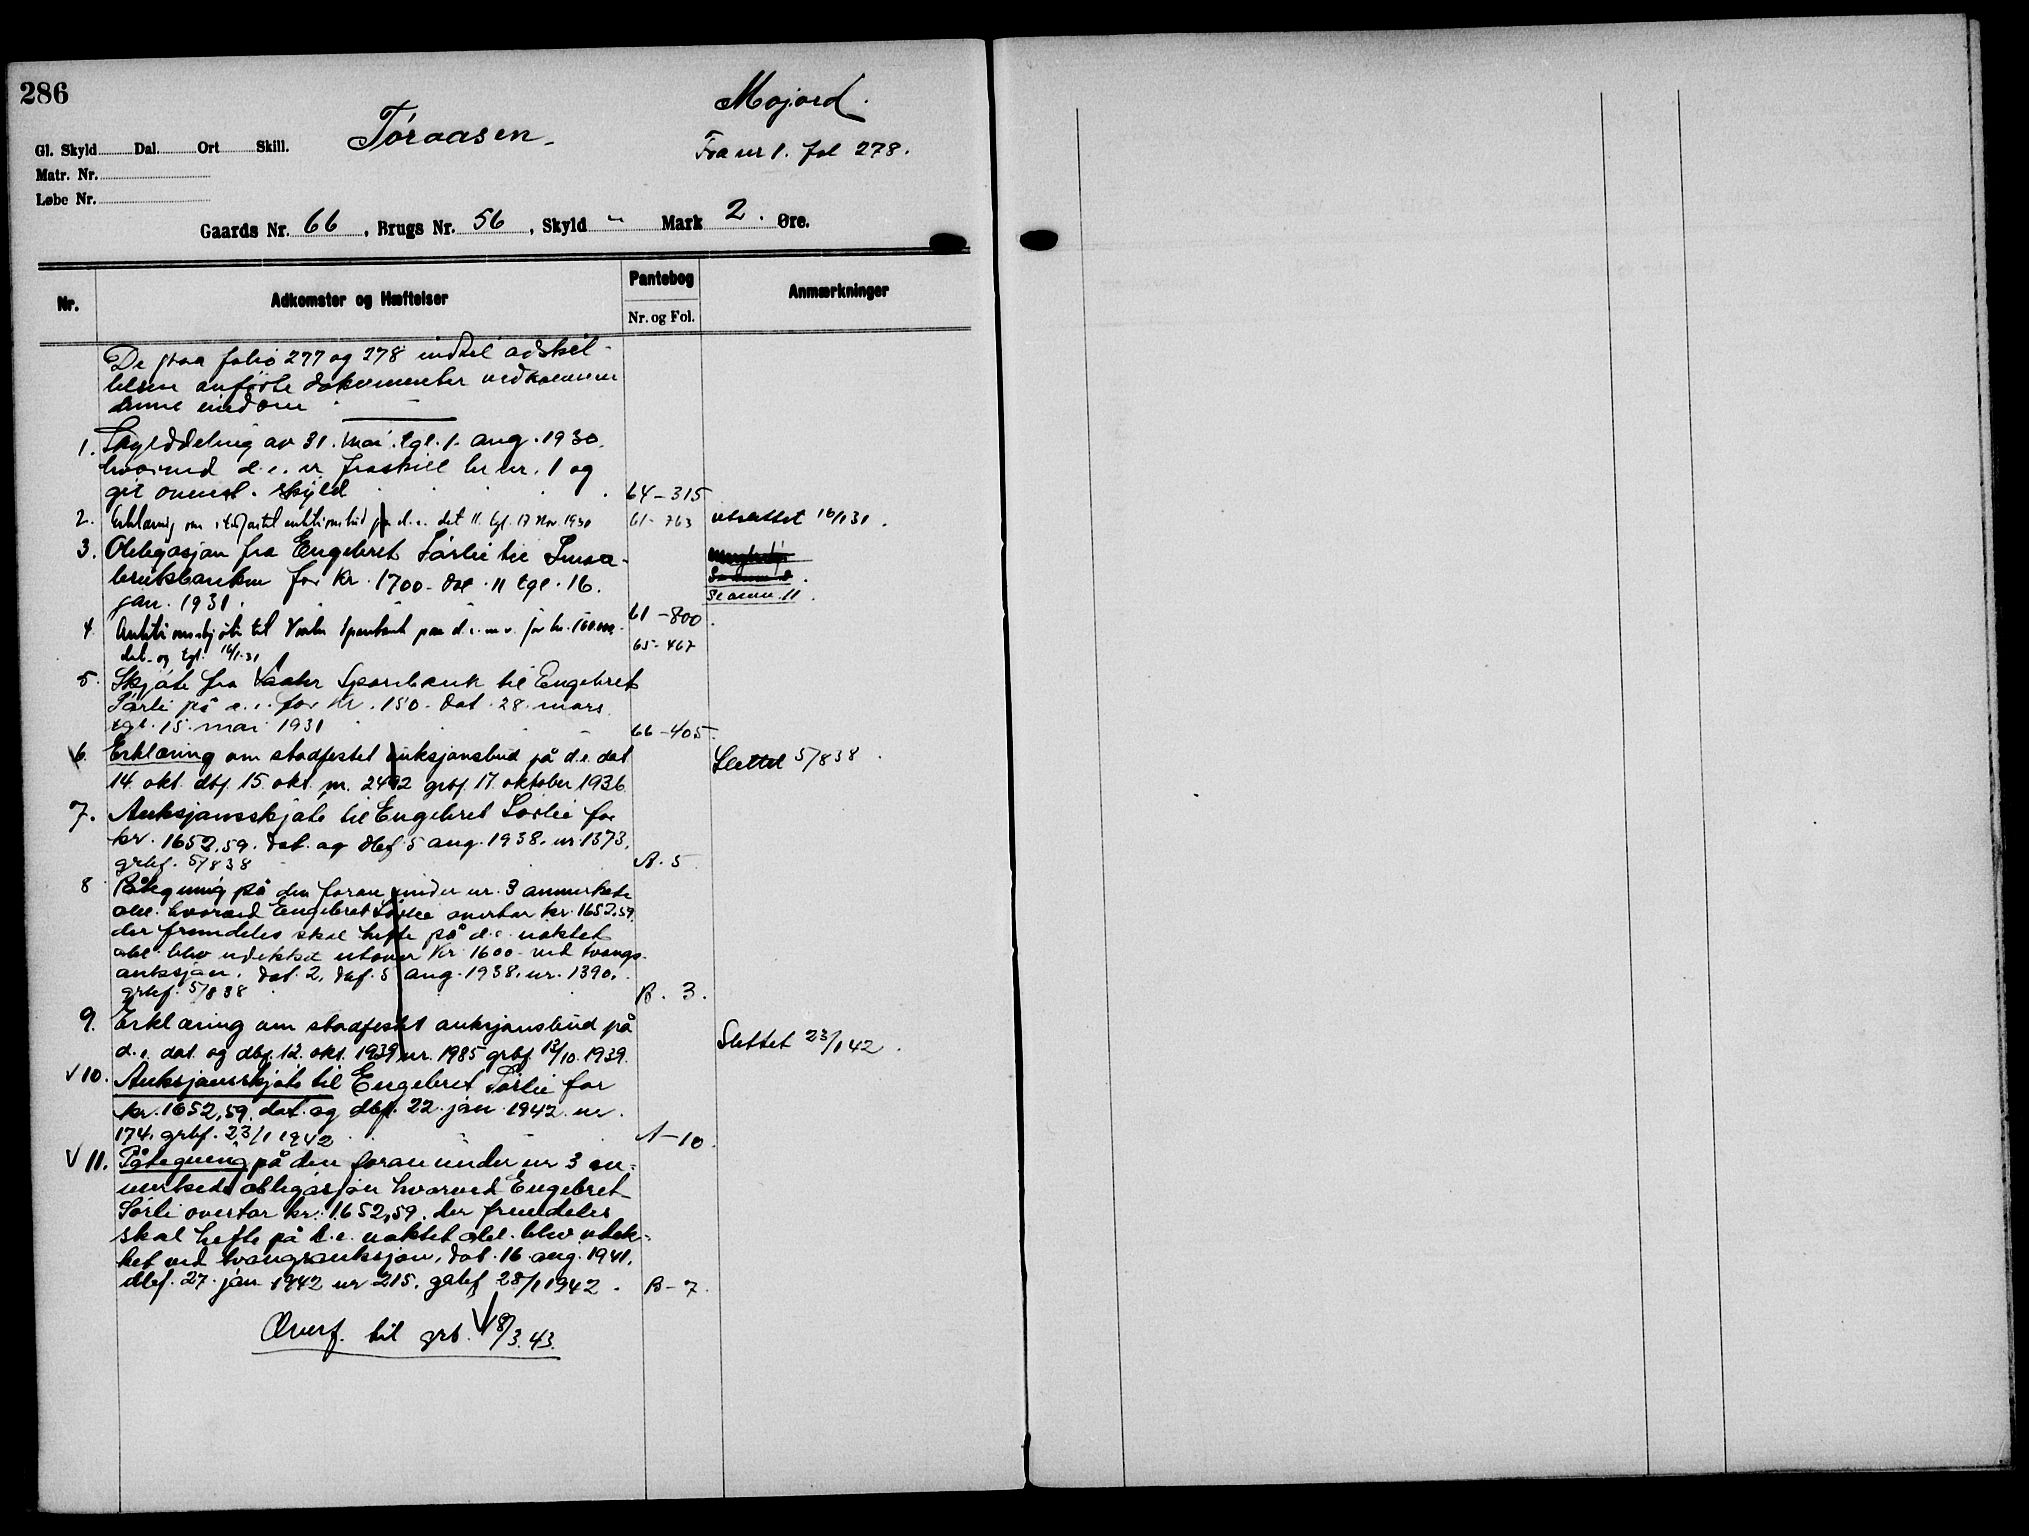 286
Mojord.
Toraasen.
Fra nr 1. fol 278.
Gl. Skyld Dal. Ort Skill.
Matr. Nr.
Løbe Nr.
Gaards Nr. 66, Brugs Nr. 56, Skyld " Mark 2. Øre.
Nr. Adkomster og Hæftelser Pantebog Nr. og Fol. Anmærkninger
De paa folio 277 og 278 indtil adskil-
lelsen anførte dokumenter vedkommer
denne eiendom
1. Skylddeling av 31. mai. tgl. 1. aug. 1930.
hvorved d.e. er fraskilt br nr. 1 og
git ovenst. skyld 64-315
2. Erklæring om stadfæstet auktionsbud paa d.e. dat 11. tgl. 17 Nov. 1930 61-763 utslettet 16/1 31.
3. Obligasjon fra Engebret Sørlie til Smaa-
brukbanken for kr. 1700- dat. 11 tgl. 16.
jan. 1931. 61-800. Se anm. 11.
4. Auktionsskjøte til Vaaler Sparebank paa d.e. m.v. for kr.
dat. og tgl. 16/1-31 65-467
5. Skjøte fra Vaaler Sparebank til Engebret
Sørli på d.e. for kr. 150- dat. 28. mars
tgl. 15. mai 1931 66-405.
6. Erklæring om stadfestet auksjonsbud på d.e. dat
14. okt. dbf. 15. okt. nr. 2492 grbf. 17. oktober 1936. Slettet 5/8 38.
7. Auksjonsskjøte til Engebret Sørlie for
kr. 1652,59. dat. og dbf. 5 aug. 1938. nr 1373.
grbf. 5/8 38 A. 5.
8 Påtegning på den foran under nr. 3 anmerkede
obl. hvorved Engebret Sørlie overtar kr. 1652,59.
der fremdeles skal hefte på d.e. uaktet
obl. blev udekket utover kr. 1600- ved tvangs-
auksjon. dat. 2. dbf. 5 aug. 1938. nr. 1390.
grbf. 5/8 38 B. 3.
9. Erklæring om stadfestet auksjonsbud på
d.e. dat. og dbf. 12. okt. 1939 nr. 1985 grbf. 13/10. 1939. Slettet 23/1 42.
√ 10. Auksjonsskjøte til Engebret Sørlie for
kr. 1652,59. dat. og dbf. 22. jan. 1942. nr.
174. grbf. 23/1 1942 A-10.
√ 11. Påtegning på den foran under nr 3 an-
merkede obligasjon hvorved Engebret
Sørli overtar kr. 1652,59. der fremdeles
skal hefte på d.e. uaktet obl. blev udek-
ket ved tvangsauksjon. dat. 16. aug. 1941.
dbf. 27. jan 1942 nr 215. grbf 28/1 1942. B-7.
Overf. til grb. √ 8/3. 43.